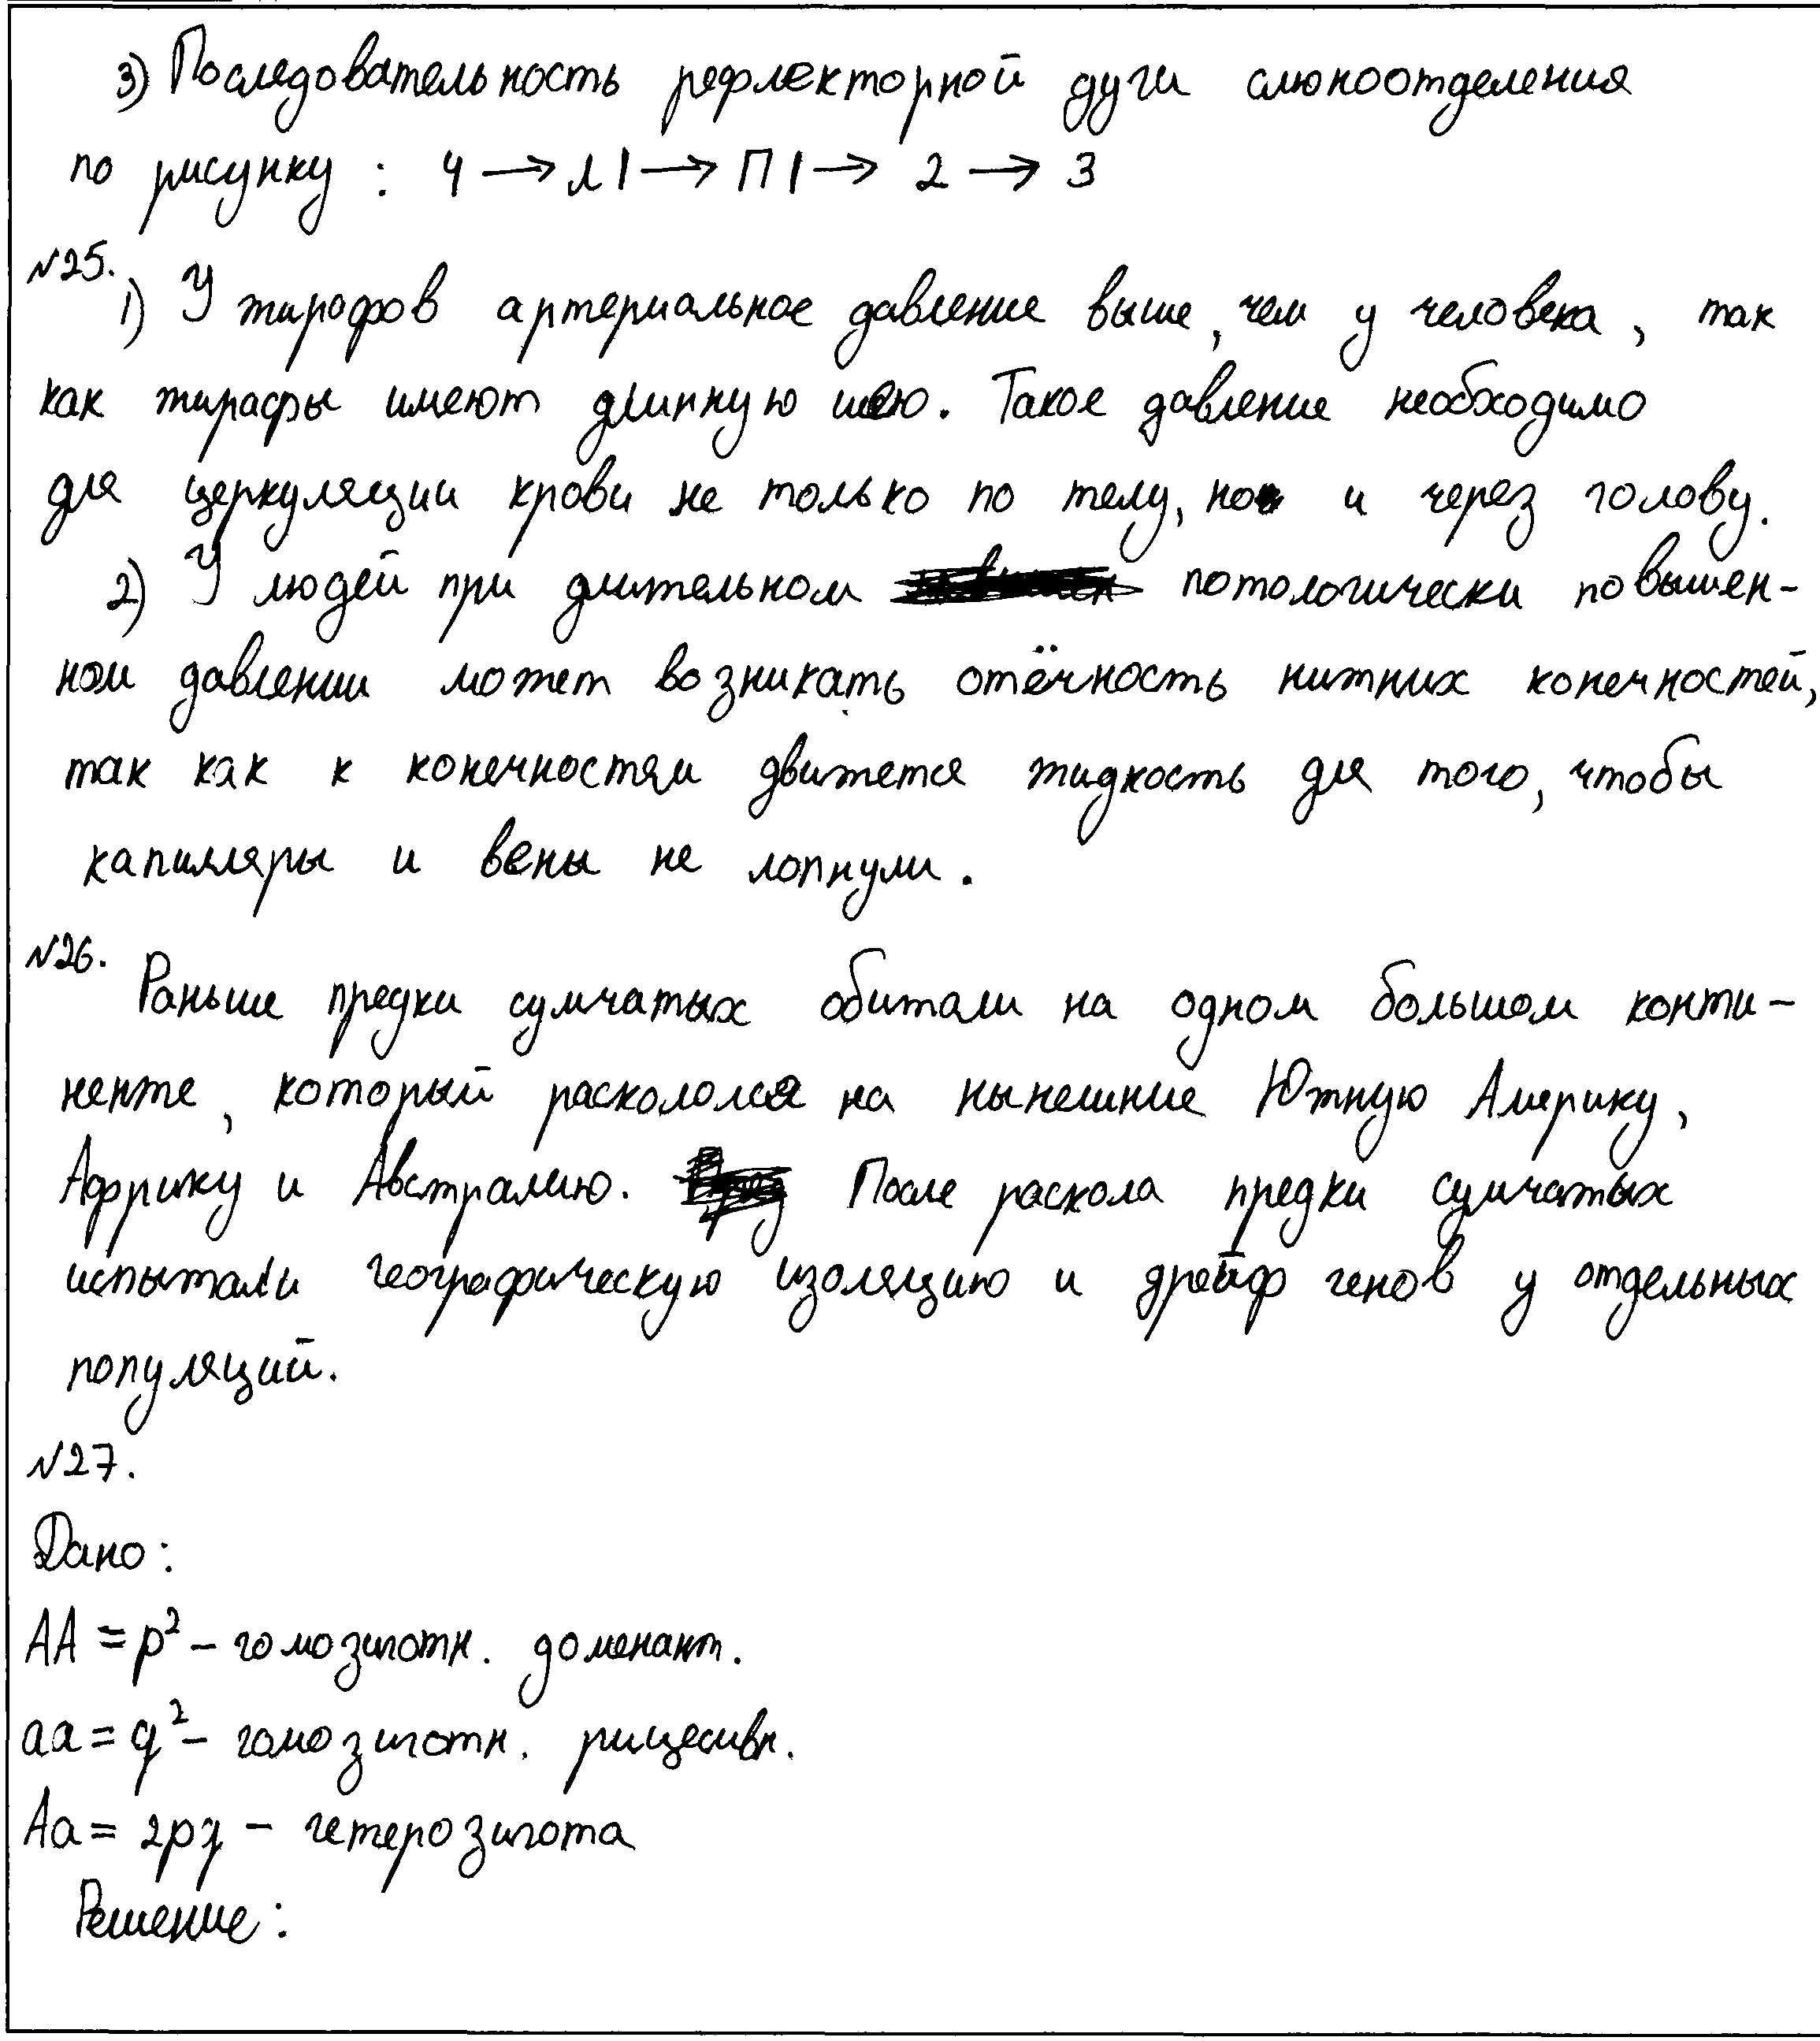 3) Последовательность рефлекторной дуги слюноотделения
по рисунку : 4 → Л1 → П1 → 2 → 3
№25.
1) У жирафов артериальное давление выше, чем у человека, так
как жирафы имеют длинную шею. Такое давление необходимо
для церкуляции крови не только по телу, но и через голову.
2) У людей при длительном потологически повышен-
ном давлении может возникать отёчность нижних конечностей,
так как к конечностям движется жидкость для того, чтобы
капилляры и вены не лопнули.
№26.
Раньше предки сумчатых обитали на одном большом конти-
ненте, который раскололся на нынешние Южную Америку,
Африку и Австралию. После раскола предки сумчатых
испытали географическую изоляцию и дрейф генов у отдельных
популяций.
№27.
Дано:
AA = p² – гомозиготн. доменант.
aa = q² – гомозиготн. рицесивн.
Aa = 2pq – гетерозигота
Решение: